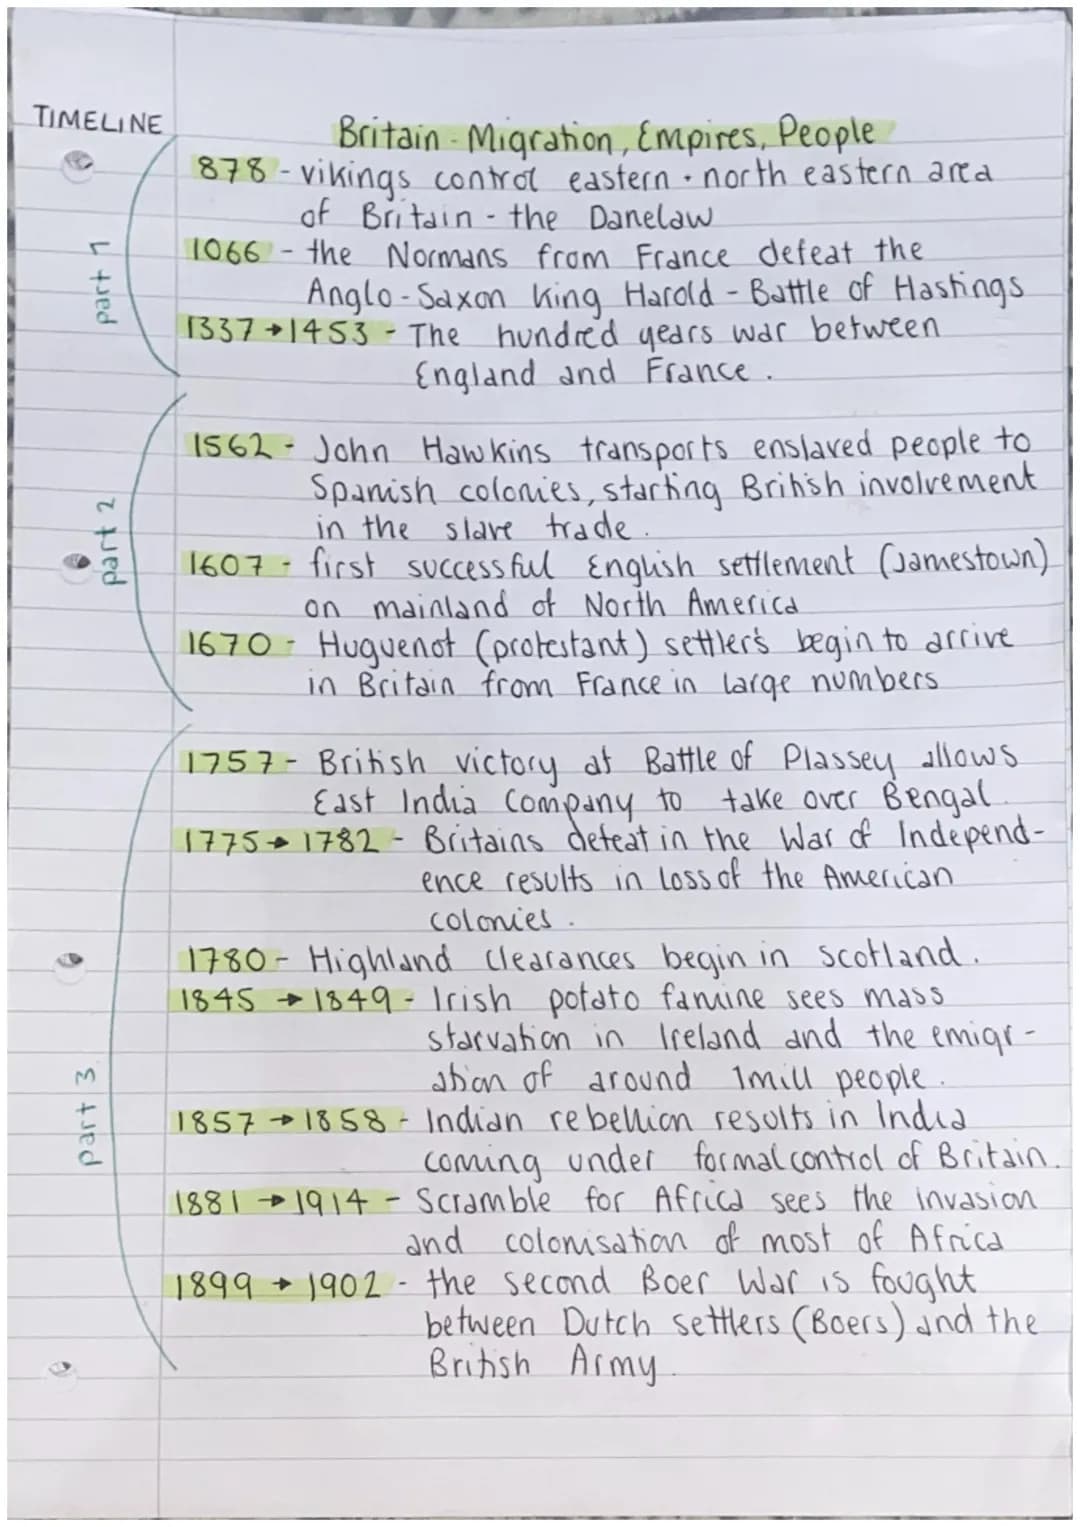 TIMELINE
Britain - Migration, Empires, People
878 - vikings control eastern · north eastern area
of Britain - the Danelaw
1066 - the Normans from France defeat the
Anglo-Saxon King Harold - Battle of Hastings
1337 → 1453 - The hundred years war between
England and France.
part 1
1562 - John Hawkins transports enslaved people to
Spanish colonies, starting British involvement
in the slave trade.
1607 - first successful English settlement (Jamestown)
on mainland of North America
1670 - Huguenot (protestant) settler's begin to arrive
in Britain from France in large numbers
part 2
1757 - British victory at Battle of Plassey allows
East India Company to take over Bengal.
1775 → 1782 - Britains defeat in the War of Independ-
ence results in loss of the American
colonies.
1780 - Highland Clearances begin in Scotland.
1845 → 1849 - Irish potato famine sees mass
starvation in Ireland and the emigr-
ation of around 1mill people.
1857 → 1858 - Indian rebellion results in India
coming under formal control of Britain.
1881 → 1914 - Scramble for Africa sees the invasion
and colonisation of most of Africa
1899 → 1902 - the second Boer War is fought
between Dutch settlers (Boers) and the
British Army.
part 3